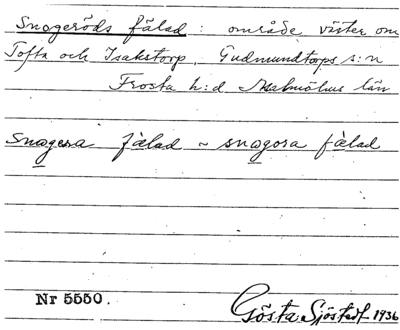 Snogeröds fälad : område väster om
Tofta och Isakstorp, Gudmundtorps s:n
Frosta h:d Malmöhus län
snogera fälad ~ snogora fàlad
Nr 5550.
Gösta Sjöstedt 1936